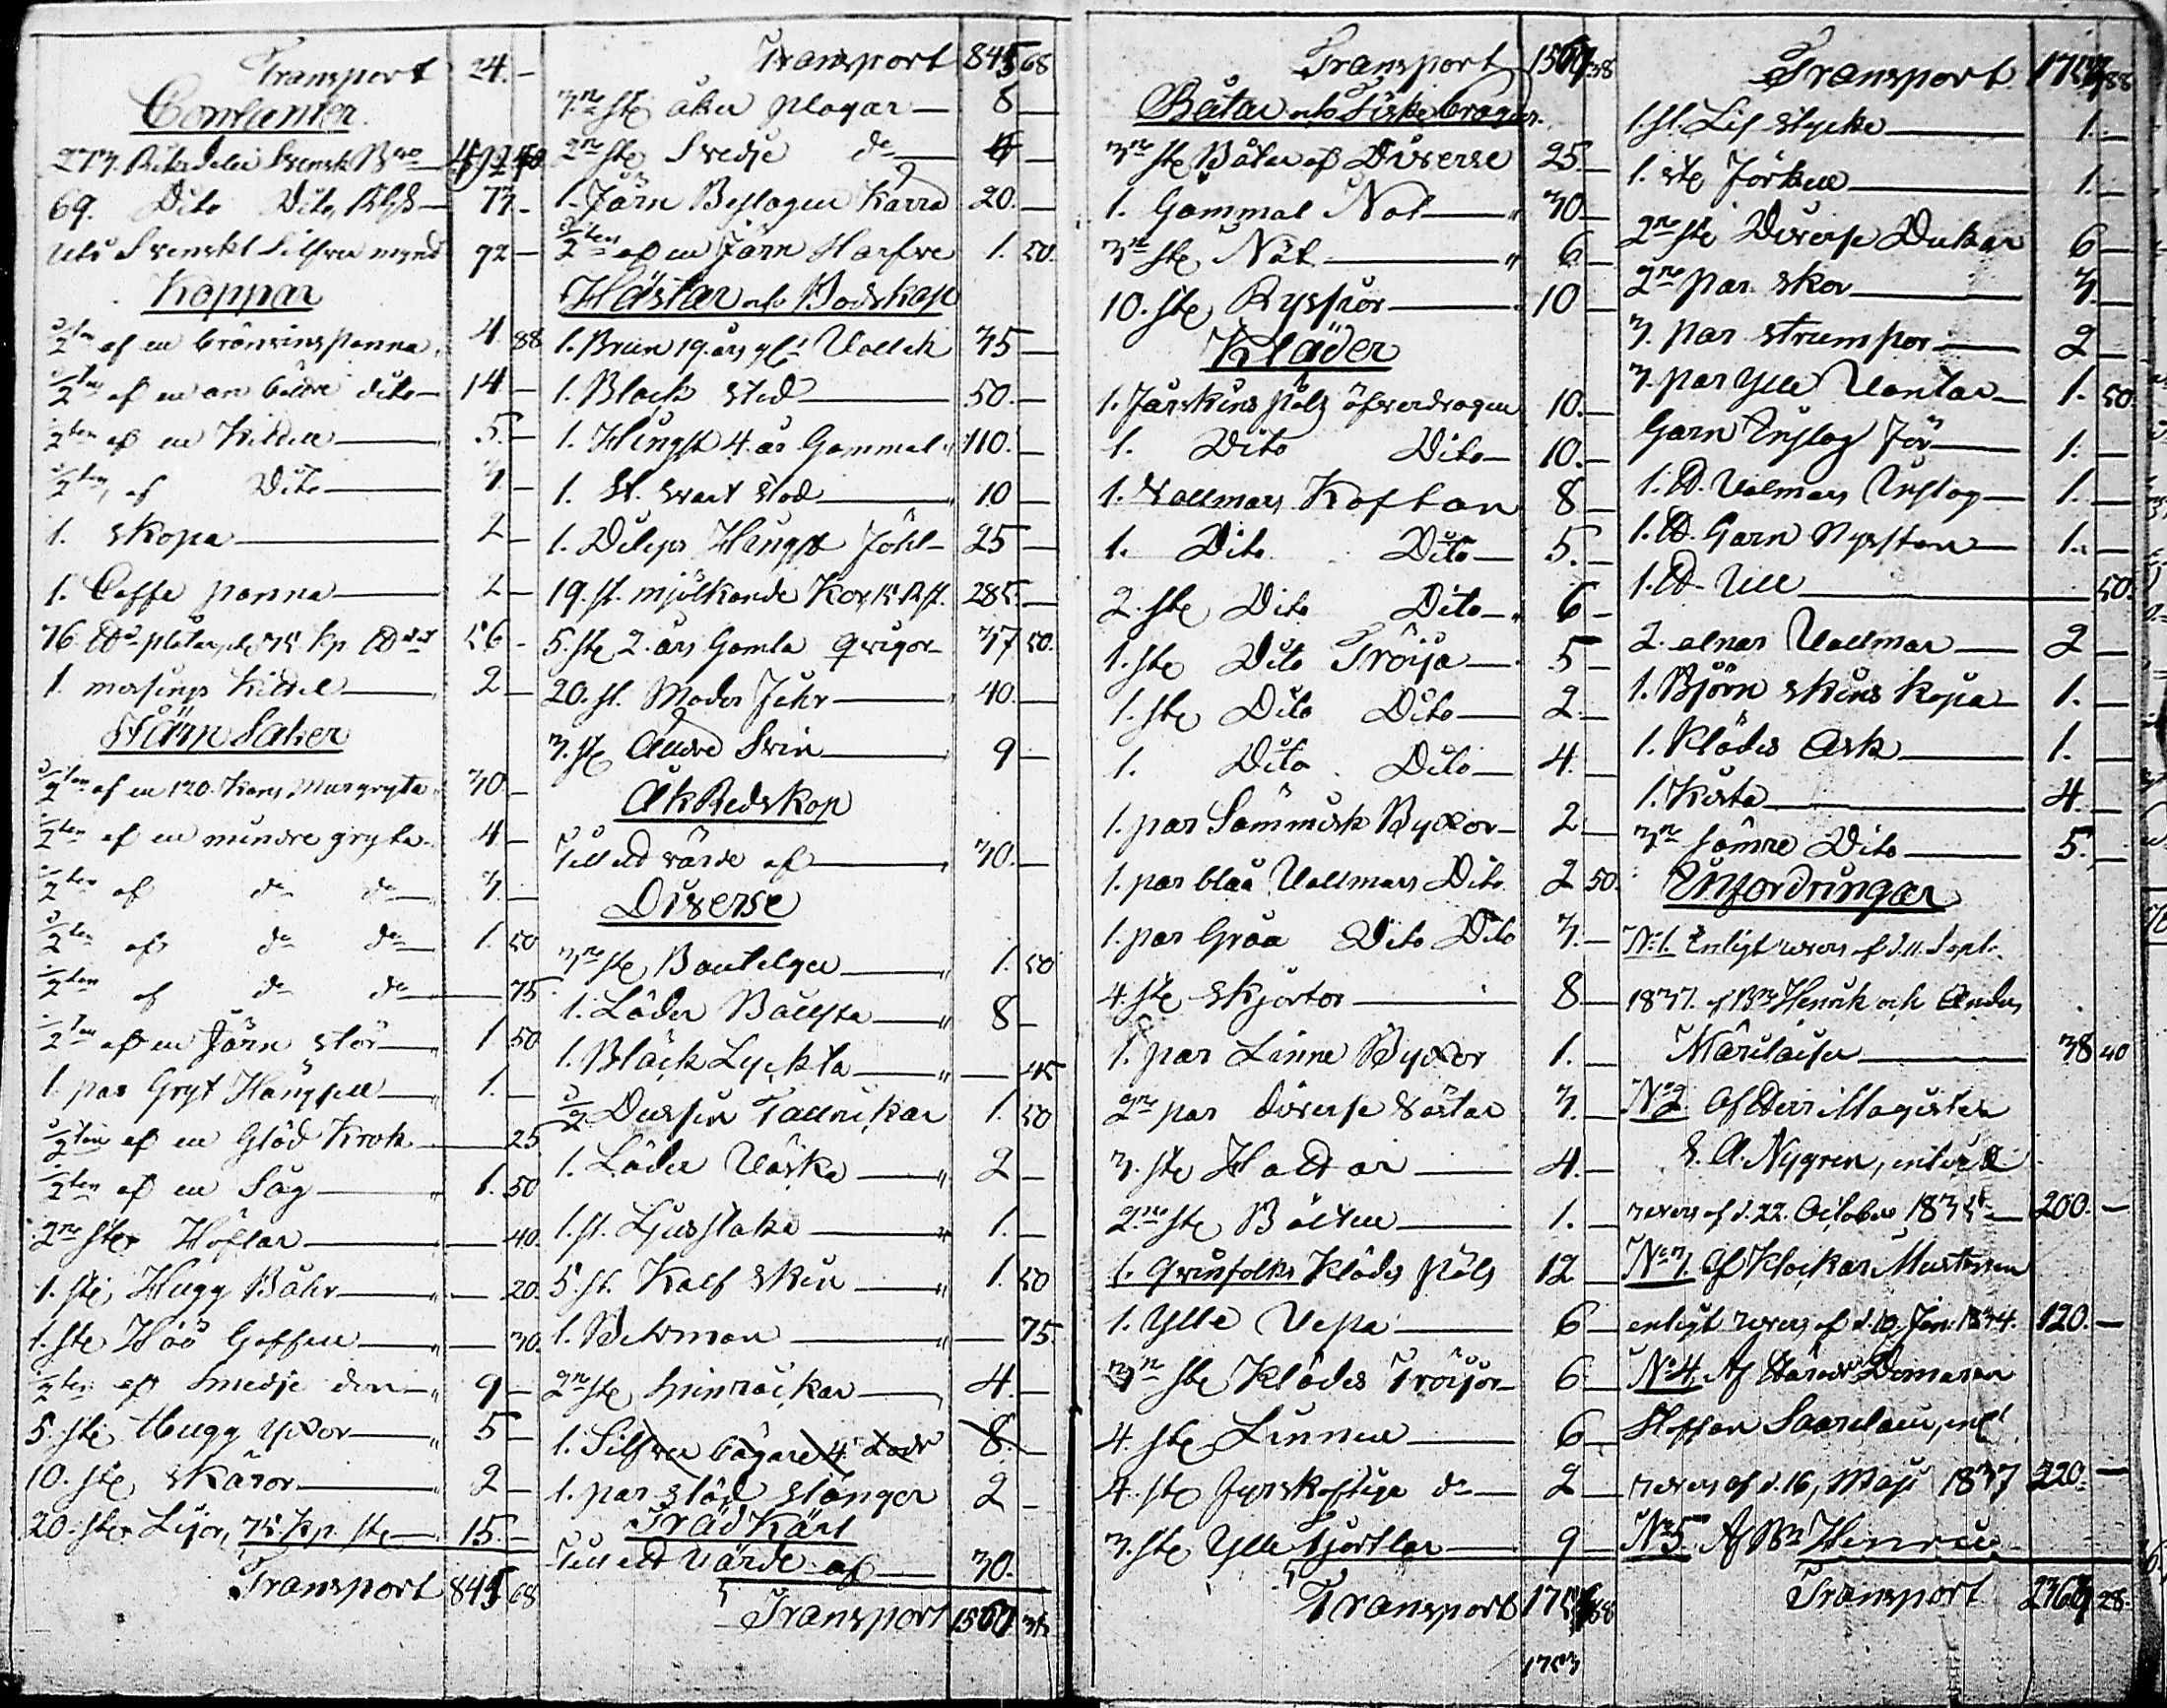 Transport 24.-
Contanter
273. Riksdaler Svensk Bco 492 40
69. Dito Dito, Rgs 73-
uti Svenskt Silfver mynt 92-
Koppar
1/2ten af en brönvinspanna 4. 88
1/2ten af en an bättre dito 14-
1/2ten af en Kittel 5.-
1/2ten af Dito 3-
1. Skopa 2-
1. Caffe panna 2-
76. plåtar, de 75 kp 56-
1. mässings Kittel 2-
Järn Saker
1/2ten af en 120. Kans Murgryta 30.-
1/2ten af en mindre gryta 4-
1/2ten af do do 3-
1/2ten af do do 1. 50
1/2ten af do do 75
1/2ten af en Järn stör 1 50
1. par Gryt Hängsell 1.-
1/2ten af en Glöd Krok 25
1/2ten af en Såg 1. 50
2ne ste Höflar 40.
1. ste Hugg Bähr 20.
1. ste Höö Gaffel 30.
1/2ten af Smedje don 9-
5. ste Hugg Yxor 5-
10. ste Skäror 2-
20. ste Lijor, 75. kp. ste 15.-
Transport 845 68
Transport 845 68
3ne ste åker plogar 8-
2ne ste Svedje do 4-
1. Järn Beslagen Kärra 20.-
1/2ten af en Järn Harfve 1. 50.
Hästar och Bodskap
1. Brun 19. års Vallack 35-
1. Black stod 50.-
1. Hingst 4. år Gammal 110.-
1. st. svart stod 10-
1. Hingst Föhl 25-
19. st. mjölkande Kor, 15 R st. 285.-
5. ste 2. års Gamla qvigor 37 50.
20. st. Moder Fåhr 40.-
3. ste Äldre Svin 9-
ÅkRedskap
Till ett värde af 30.-
Diverse
3ne ste Bouteljer 1. 50
1. Läder 8-
1. Bläck Lyckta 45
1/2 Dussin Tallrikar 1. 50
1. Läder Väska 2-
1. st. Ljusstake 1.-
5. st. Kalf Skin 1. 50
1. Betsman 75.
2ne ste Spinråckar 4.-
1. Silfver bägare 4. Lod 8.-
1. par släd stänger 2-
TrädKärl
Till ett Värde af 30.-
Transport 1560. 38
Transport 1560 38
Båtar och Fiske bragder
3ne ste Båtar af Diverse 25.-
1. Gammal Not 30-
3ne ste Nät 6-
10. ste Ryssjor 10-
Kläder
1. Fårskins päls öfverdragen 10.-
1. Dito Dito 10.-
1. Vallmars Kaftan 8-
1. Dito Dito 5.-
2. ste Dito Dito 6-
1. ste Dito Tröija 5-
1. ste Dito Dito 2-
1. Dito Dito 4.-
1. par Sämmisk Byxor 2-
1. par blåa Vallmars Dito 2 50.
1. par Gråa Dito Dito 3.-
4. ste Skjortor 8-
1. par Linne Byxor 1.-
2ne par diverse Västar 3.-
3. ste Hattar 4.-
2ne ste Bälten 1.-
1. Qvinfolks Klädes päls 12-
1. Ylle Vepa 6-
3ne ste Klädes Tröijor 6-
4. ste Linnen 6-
4. ste fyrskaftiga do 2-
3. ste Ylle Kjortlar 9-
Transport 88
1753
Transport 88
1. st. Lif stycke 1.-
1. ste Förkle 1.-
2ne ste Diverse Dukar 6-
2ne par Skor 3.-
3. par strumpor 2-
3. par Ylle Vantar 1. 50.
Garn Inslag för 1.-
1. Valmars Inslag 1.-
1. Garn Nystan 1.-
1. Ull 50.
2. alnar Vallmar 2-
1. Björn skins kapa 1.-
1. Klädes Ask 1.-
1. Kista 4.-
3ne sämre Dito 5.-
Utfordringar
No 1. Enligt revers af d. 11. Sept.
1837. af Bn Henrik och Anders
38 40
No 2. Af Herr Magister
Nygren, enligt
revers af d. 22. October 1835 200.-
No 3. Af Klockar Mustonen
enligt revers af d. 10. Jan. 1834. 120.-
No 4. Af Härads Domaren
Staffan Saarelain, enl
revers af d. 16, Maji 1837 220.-
No 5. Af Bn Henric
Transport 28